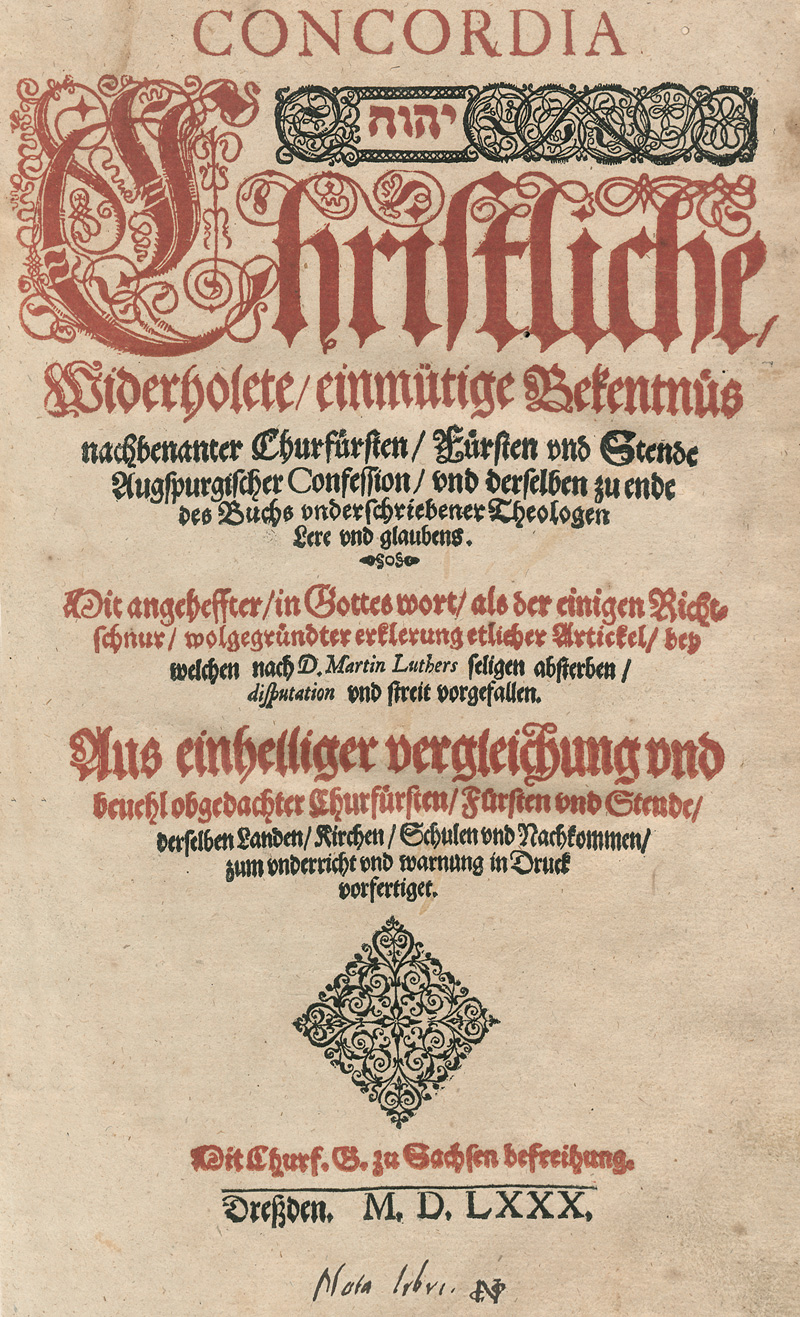 CONCORDIA
יהוה
Christliche,
Widerholete/einmütige Bekentnüs
nachbenanter Churfürsten/ Fürsten vnd Stende
Augspurgischer Confession/ vnd derselben zu ende
des Buchs vnderschriebener Theologen
Lere vnd glaubens.
Mit angeheffter/in Gottes wort/ als der einigen Richt-
schnur/ wolgegründter erklerung etlicher Artickel/ bey
welchen nach D. Martin Luthers seligen absterben /
disputation vnd streit vorgefallen.
Aus einhelliger vergleichung vnd
beuehl obgedachter Churfürsten/ Fürsten vnd Stende/
derselben Landen/ Kirchen/ Schulen vnd Nachkommen/
zum vnderricht vnd warnung in Druck
vorfertiget.
Mit Churf. G. zu Sachsen befreihung.
Dreßden. M. D. LXXX.
Nota